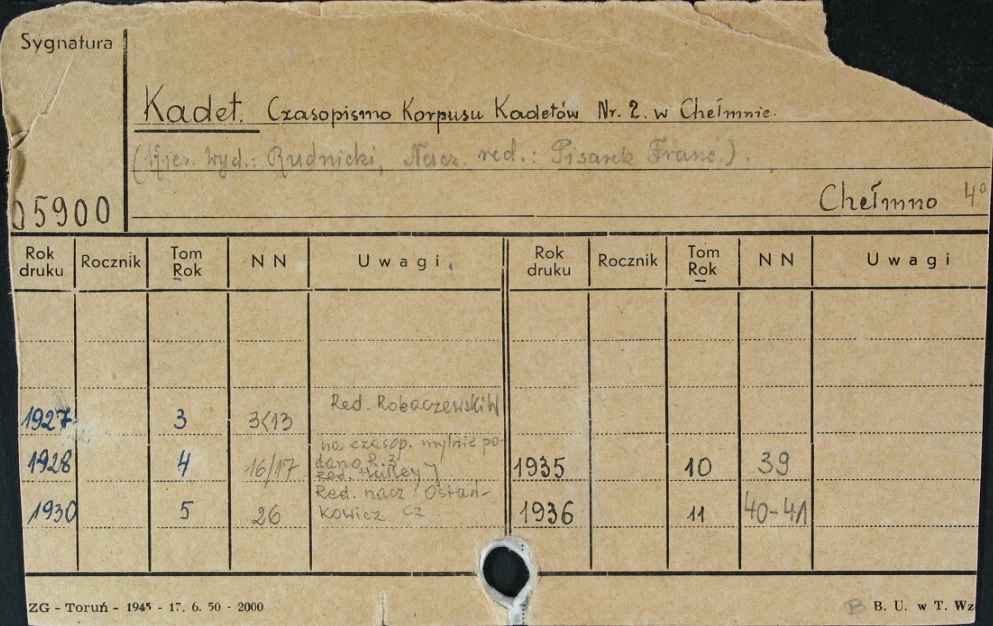 Sygnatura
Kadet. Czasopismo Korpusu Kadetów Nr. 2. w Chełmnie.
wyd.: Rudnicki, Nacz. red.: Pisarek Franc.).
05900
Chełmno 4°
Rok druku Rocznik Tom Rok NN Uwagi Rok druku Rocznik Tom Rok NN Uwagi
Red. Robaczewski W
1927 3 3<13
na czasop. mylnie po-
dano R. 3
1928 4 16/17 1935 10 39
Red. J
Red. nacz. Ostań-
1930 5 26 kowicz Cz 1936 11 40-41
ZG - Toruń - 1945 - 17. 6. 50 - 2000
B. U. w T. Wz